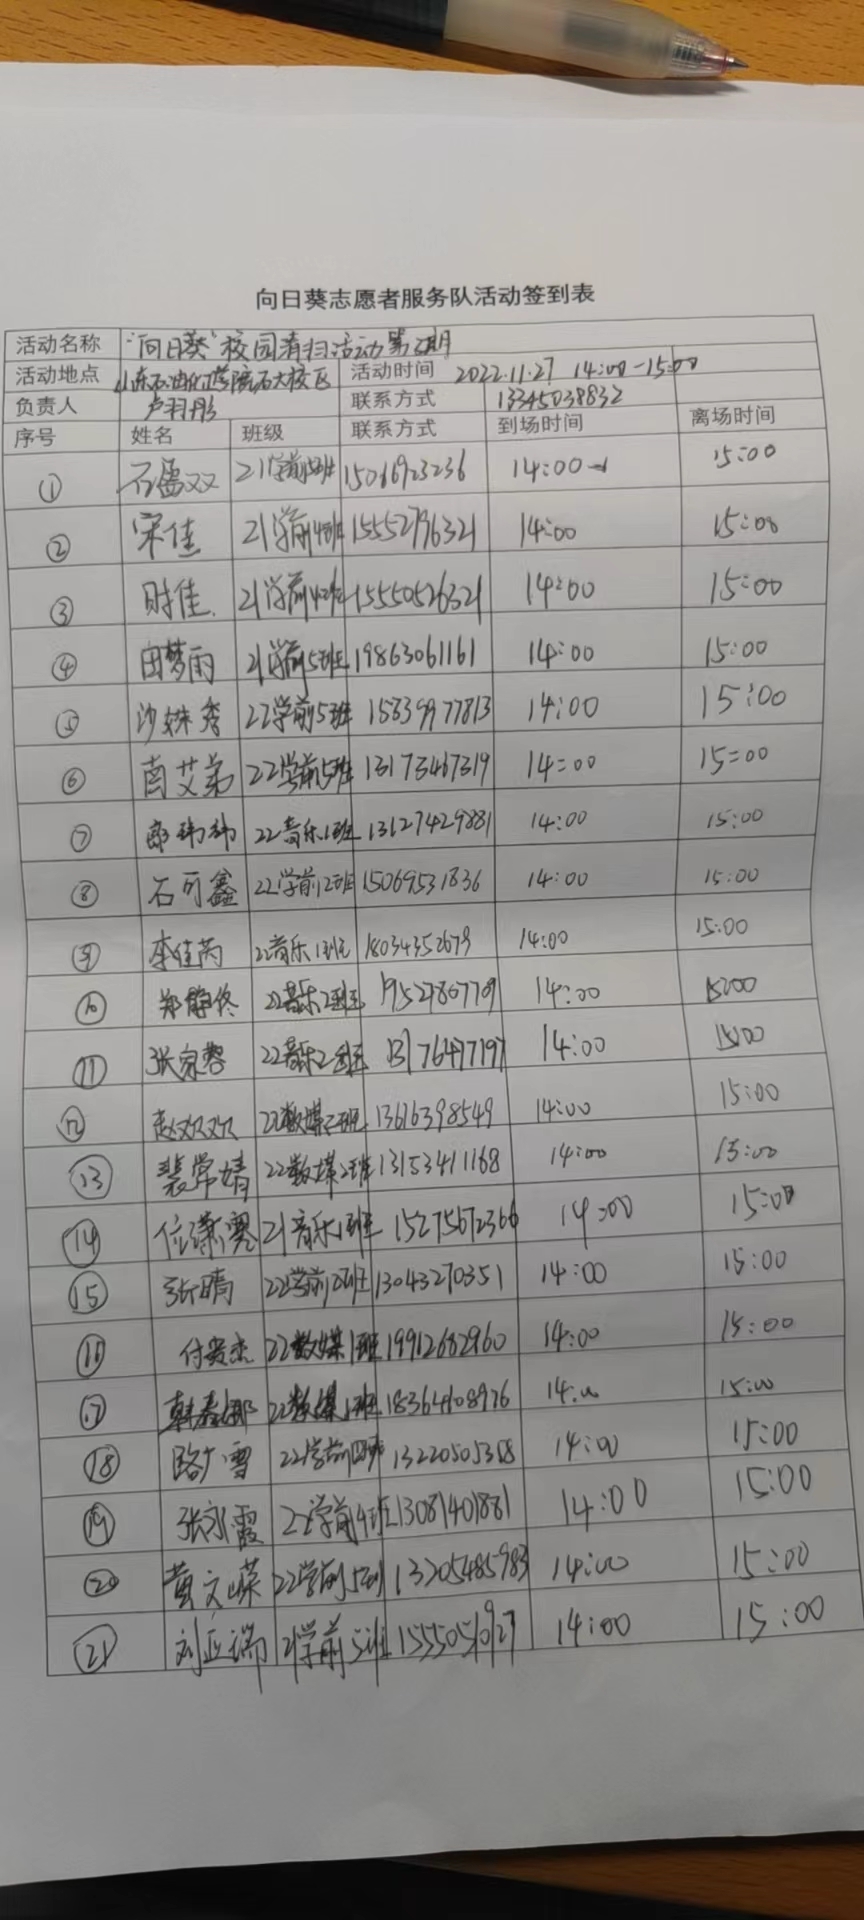 向日葵志愿者服务队活动签到表
活动名称 "向日葵"校园清扫活动第 期
活动地点 山东石油化工学院石大校区 活动时间 2022.11.27 14:00-15:00
负责人 卢羽彤 联系方式 13345038832
序号 姓名 班级 联系方式 到场时间 离场时间
① 石 双 21学前5班 15066923236 14:00 15:00
② 宋佳 21学前4班 15552796321 14:00 15:00
③ 时佳 21学前4班 15550526321 14:00 15:00
④ 田梦雨 21学前5班 19863061161 14:00 15:00
⑤ 沙姝秀 22学前5班 15839977813 14:00 15:00
⑥ 南艾弟 22学前5班 13173467319 14:00 15:00
⑦ 郭玮玮 22音乐1班 13127429881 14:00 15:00
⑧ 石可鑫 22学前2班 15069531836 14:00 15:00
⑨ 李佳芮 22音乐1班 18034352679 14:00 15:00
⑩ 郑静佟 22音乐2班 19527867709 14:00 15:00
⑪ 张家蓉 22音乐2班 13176497197 14:00 15:00
⑫ 赵欢欢 22数媒2班 13616398549 14:00 15:00
⑬ 裴常婧 22数媒2班 13153411168 14:00 15:00
⑭ 位潇骞 21音乐1班 15275672366 14:00 15:00
⑮ 张晴 22学前2班 13043270351 14:00 15:00
⑯ 付贵杰 22数媒1班 19912682960 14:00 15:00
⑰ 韩春娜 22数媒1班 18364108976 14:00 15:00
⑱ 路广雪 22学前四班 13220505358 14:00 15:00
⑲ 张永霞 22学前4班 13081401881 14:00 15:00
⑳ 黄文嵘 22学前5班 13205485983 14:00 15:00
㉑ 刘丘瑞 21学前5班 15550510927 14:00 15:00